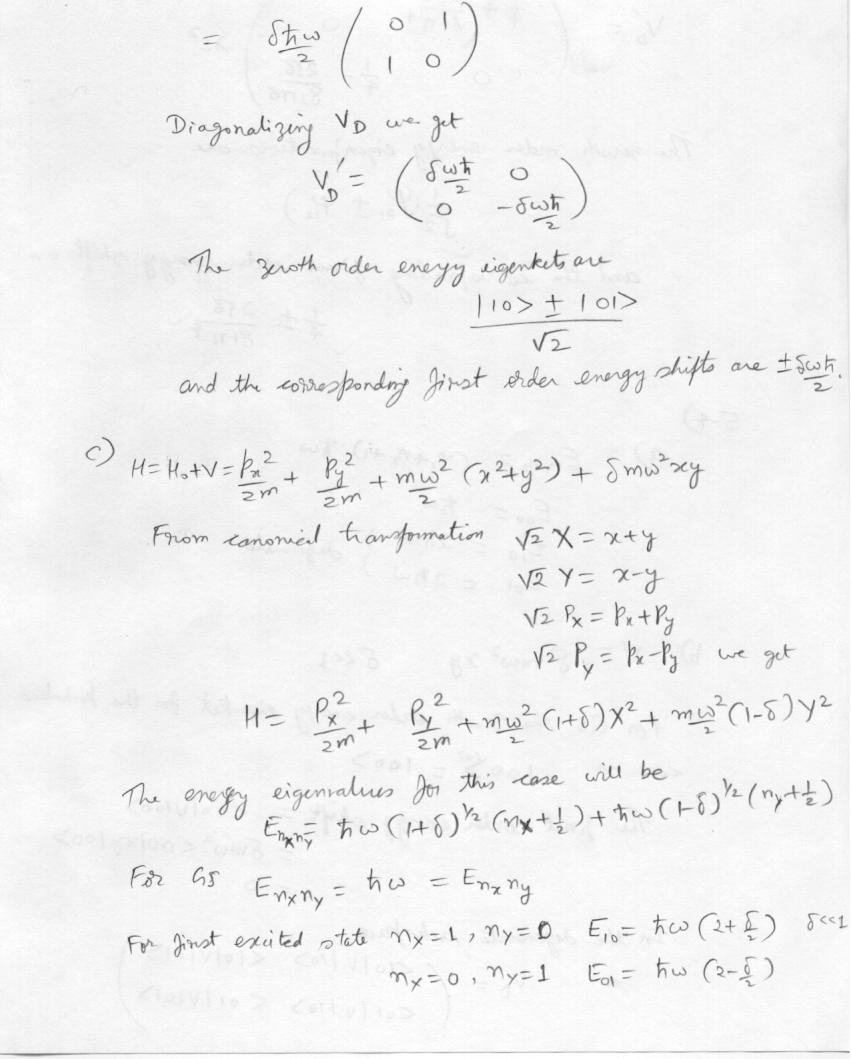 = δħω/2 ( 0 1
1 0 )
Diagonalizing V_D we get
V_D' = ( δωħ/2 0
0 -δωħ/2 )
The zeroth order energy eigenkets are
|10> ± |01>
√2
and the corresponding first order energy shifts are ± δωħ/2.
c) H = H₀+V = pₓ²/2m + p_y²/2m + mω²/2 (x²+y²) + δmω²xy
From canonical transformation √2 X = x+y
√2 Y = x-y
√2 P_X = pₓ+p_y
√2 P_Y = pₓ-p_y we get
H = P_X²/2m + P_Y²/2m + mω²/2 (1+δ)X² + mω²/2 (1-δ)Y²
The energy eigenvalues for this case will be
E_{n_X n_Y} = ħω(1+δ)^{1/2} (n_X+1/2) + ħω(1-δ)^{1/2} (n_Y+1/2)
For GS E_{n_X n_Y} = ħω = E_{n_x n_y}
For first excited state n_X=1, n_Y=0 E₁₀ = ħω (2+δ/2) δ<<1
n_X=0, n_Y=1 E₀₁ = ħω (2-δ/2)